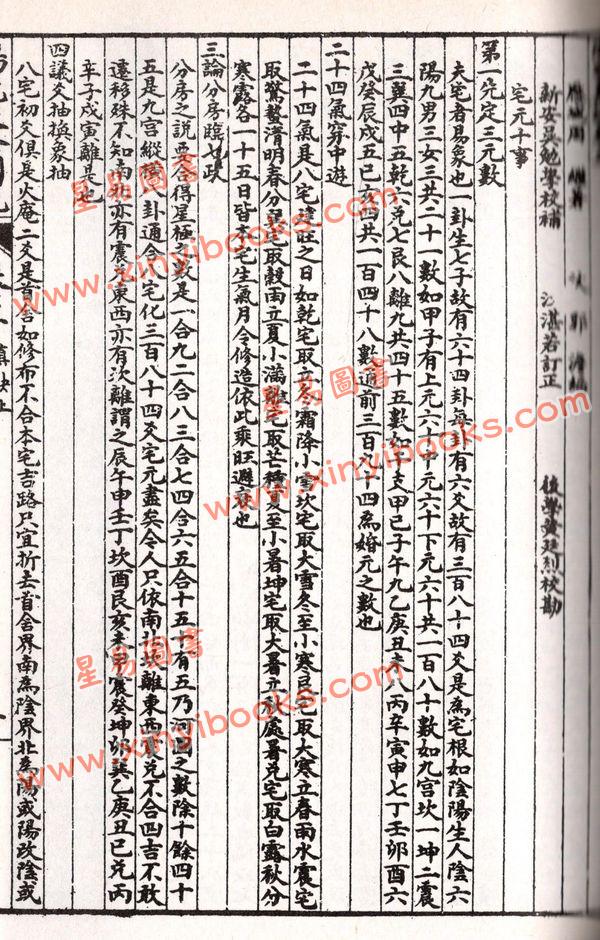 應城周 繼著
新安吳勉學校補 湛若訂正 後學黃廷烈校勘
宅元十事
第一先定三元數
夫宅者易象也一卦生七子故有六十四卦每卦有六爻故有三百八十四爻是為宅根如陰陽生人陰六
陽九男三女三共二十一數如甲子有上元六十中元六十下元六十共一百八十數如九宮坎一坤二震
三巽四中五乾六兌七艮八離九共四十五數如干支甲己子午九乙庚丑未八丙辛寅申七丁壬卯酉六
戊癸辰戌五巳亥四共一百四十八數通前三百八十四為婚元之數也
二十四氣穿中遊
二十四氣是八宅健旺之日如乾宅取立冬霜降小雪坎宅取大雪冬至小寒艮宅取大寒立春雨水震宅
取驚蟄清明春分巽宅取穀雨立夏小滿離宅取芒種夏至小暑坤宅取大暑立秋處暑兌宅取白露秋分
寒露各一十五日皆本宅生氣月令修造依此乘旺避衰也
三論分房臨七政
分房之說要合得星極多數是一合九二合八三合七四合六五合十五十有五乃河圖之數除十餘四十
五是九宮縱橫八卦通合八宅化三百八十四爻宅元盡矣今人只依南北坎離東西震兌不合四吉不敢
遷移殊不知南北亦有震兌東西亦有坎離謂之辰午申壬丁坎酉艮亥未甲震癸坤卯巽乙庚丑巳兌丙
辛子戌寅離是也
四議爻抽換象抽
八宅初爻俱是火庵二爻是首舍如修布不合本宅吉路只宜折去首舍界南為陰界北為陽或陽改陰或